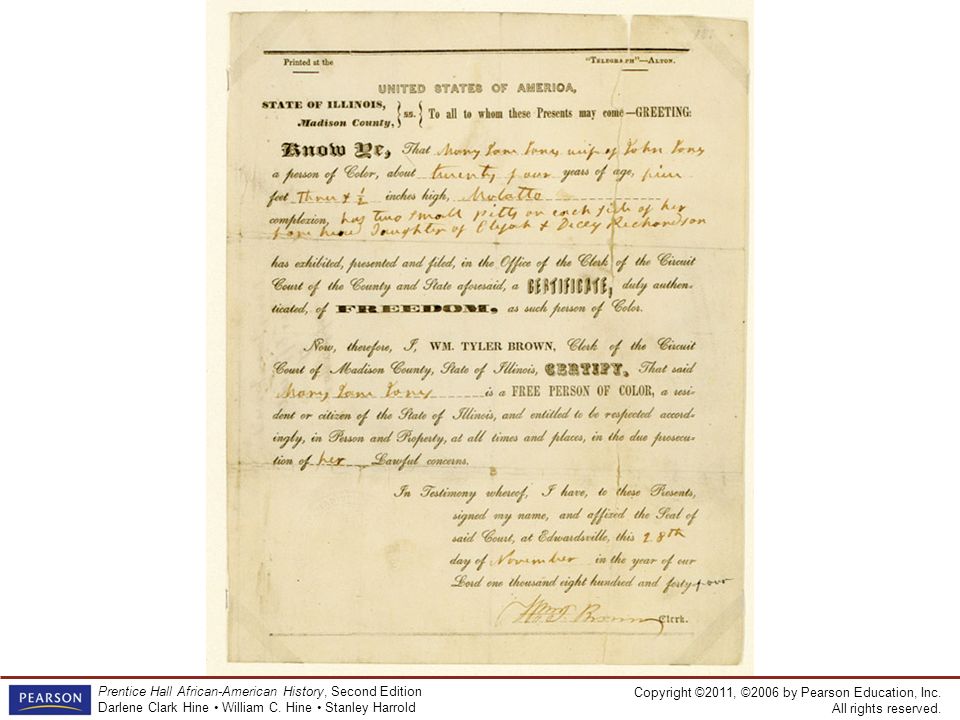 Printed at the "TELEGRAPH"—ALTON.
UNITED STATES OF AMERICA,
STATE OF ILLINOIS,
Madison County, } ss. { To all to whom these Presents may come—GREETING:
Know Ye, That Mary Jane Jones wife of John Jones
a person of Color, about twenty four years of age, five
feet Three & ½ inches high, Molatto
complexion, has two small pitts on each side of her
fore head Daughter of Elijah & Dicey Richardson
has exhibited, presented and filed, in the Office of the Clerk of the Circuit
Court of the County and State aforesaid, a CERTIFICATE, duly authen-
ticated, of FREEDOM, as such person of Color.
Now, therefore, I, WM. TYLER BROWN, Clerk of the Circuit
Court of Madison County, State of Illinois, CERTIFY, That said
Mary Jane Jones is a FREE PERSON OF COLOR, a resi-
dent or citizen of the State of Illinois, and entitled to be respected accord-
ingly, in Person and Property, at all times and places, in the due prosecu-
tion of her Lawful concerns.
In Testimony whereof, I have, to these Presents,
signed my name, and affixed the Seal of
said Court, at Edwardsville, this 28th
day of November in the year of our
Lord one thousand eight hundred and forty four
Wm. T. Brown Clerk.
PEARSON
Prentice Hall African-American History, Second Edition
Darlene Clark Hine • William C. Hine • Stanley Harrold
Copyright ©2011, ©2006 by Pearson Education, Inc.
All rights reserved.